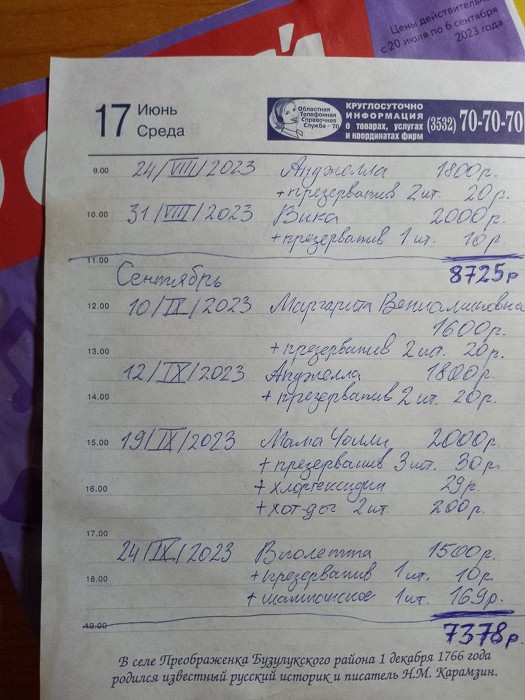 Цены действительн
с 20 июля по 6 сентября
2023 года
17 Июнь
Среда
Областная
Телефонная
Справочная
Служба - 70
КРУГЛОСУТОЧНО
ИНФОРМАЦИЯ
о товарах, услугах
и координатах фирм
(3532) 70-70-70
9.00 24/VIII/2023 Анджелла 1800р.
+презерватив 2 шт. 20р.
10.00 31/VIII/2023 Вика 2000р.
+презерватив 1 шт. 10р.
11.00
Сентябрь 8725р
12.00 10/IX/2023 Маргарита Вениаминовна
1600р.
13.00 + презерватив 2 шт. 20р.
12/IX/2023 Анджелла 1800р.
14.00 + презерватив 2 шт. 20р.
15.00 19/IX/2023 Мама Чолли 2000р.
+ презерватив 3 шт. 30р.
16.00 + хлоргексидин 29р.
+ хот-дог 2 шт 200р.
17.00
24/IX/2023 Виолетта 1500р.
18.00 + презерватив 1 шт. 10р.
+ шампанское 1 шт. 169р.
19.00
7378р.
В селе Преображенка Бузулукского района 1 декабря 1766 года
родился известный русский историк и писатель Н.М. Карамзин.